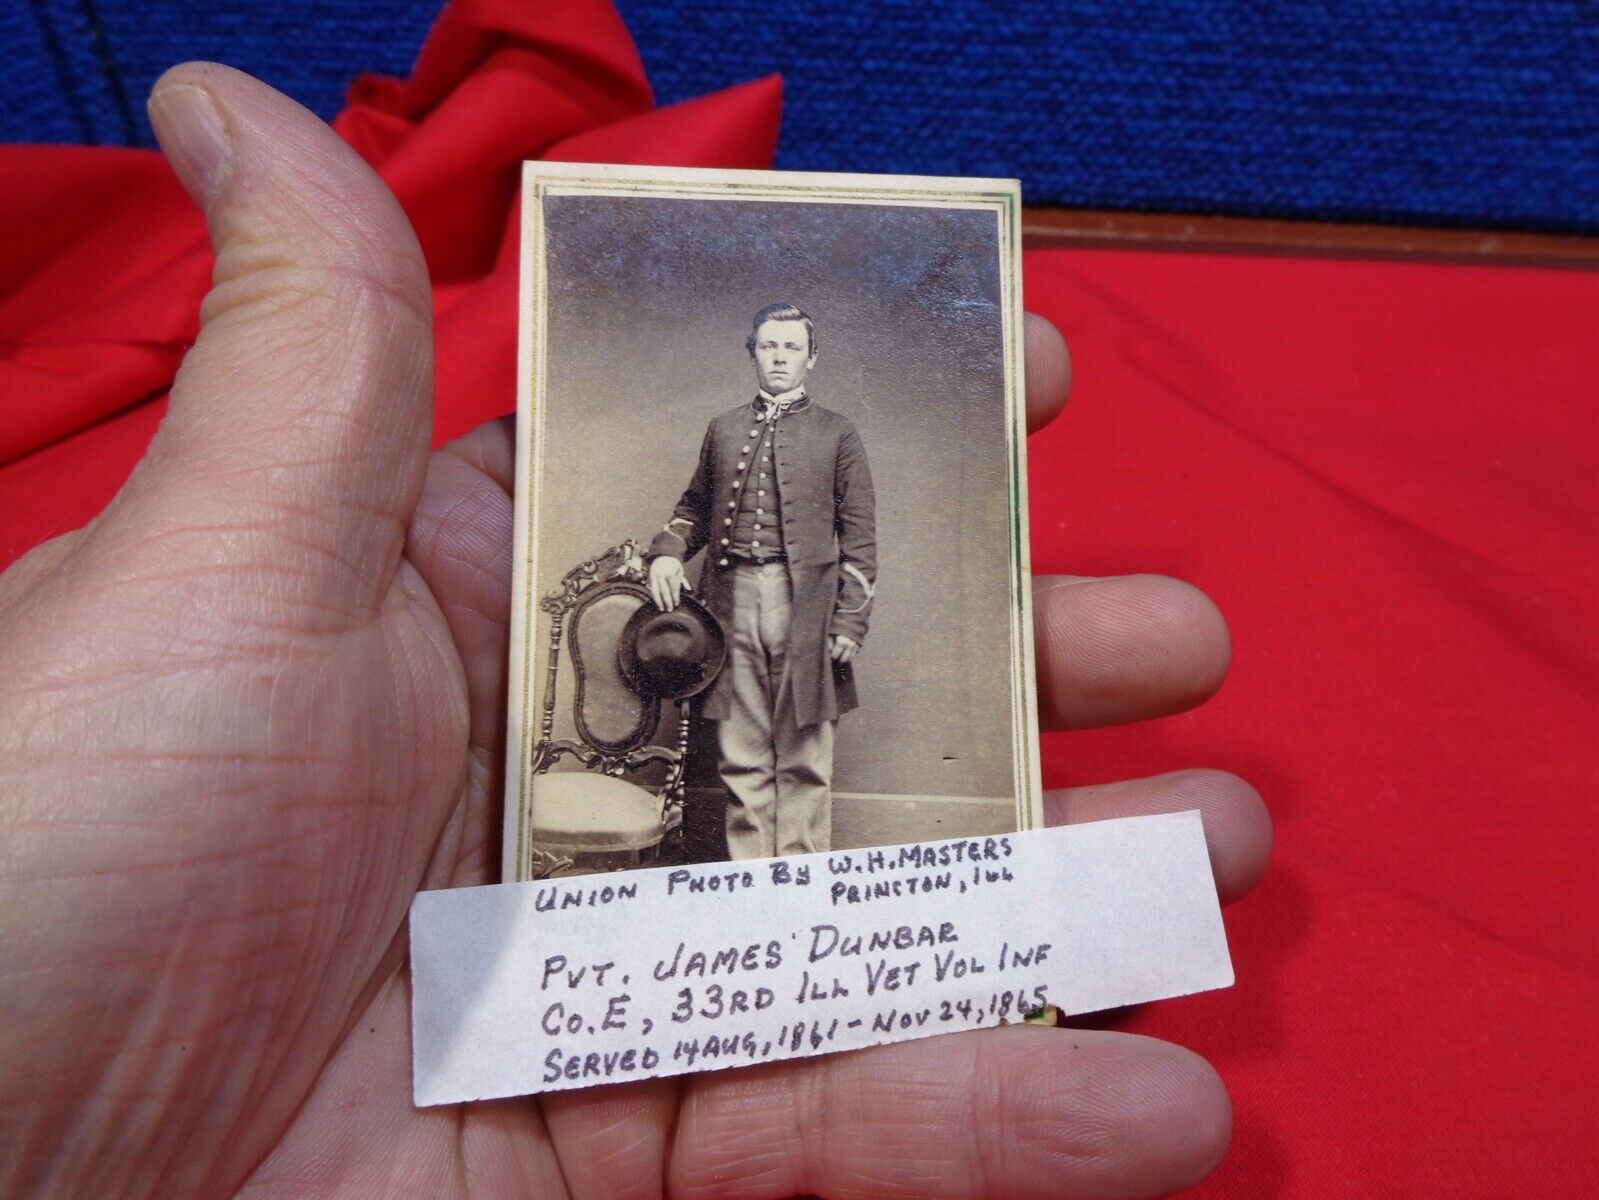 UNION PHOTO BY W.H. MASTERS
PRINCTON, ILL
PVT. JAMES DUNBAR
CO. E, 33RD ILL VET VOL INF
SERVED 14 AUG, 1861 - NOV 24, 1865